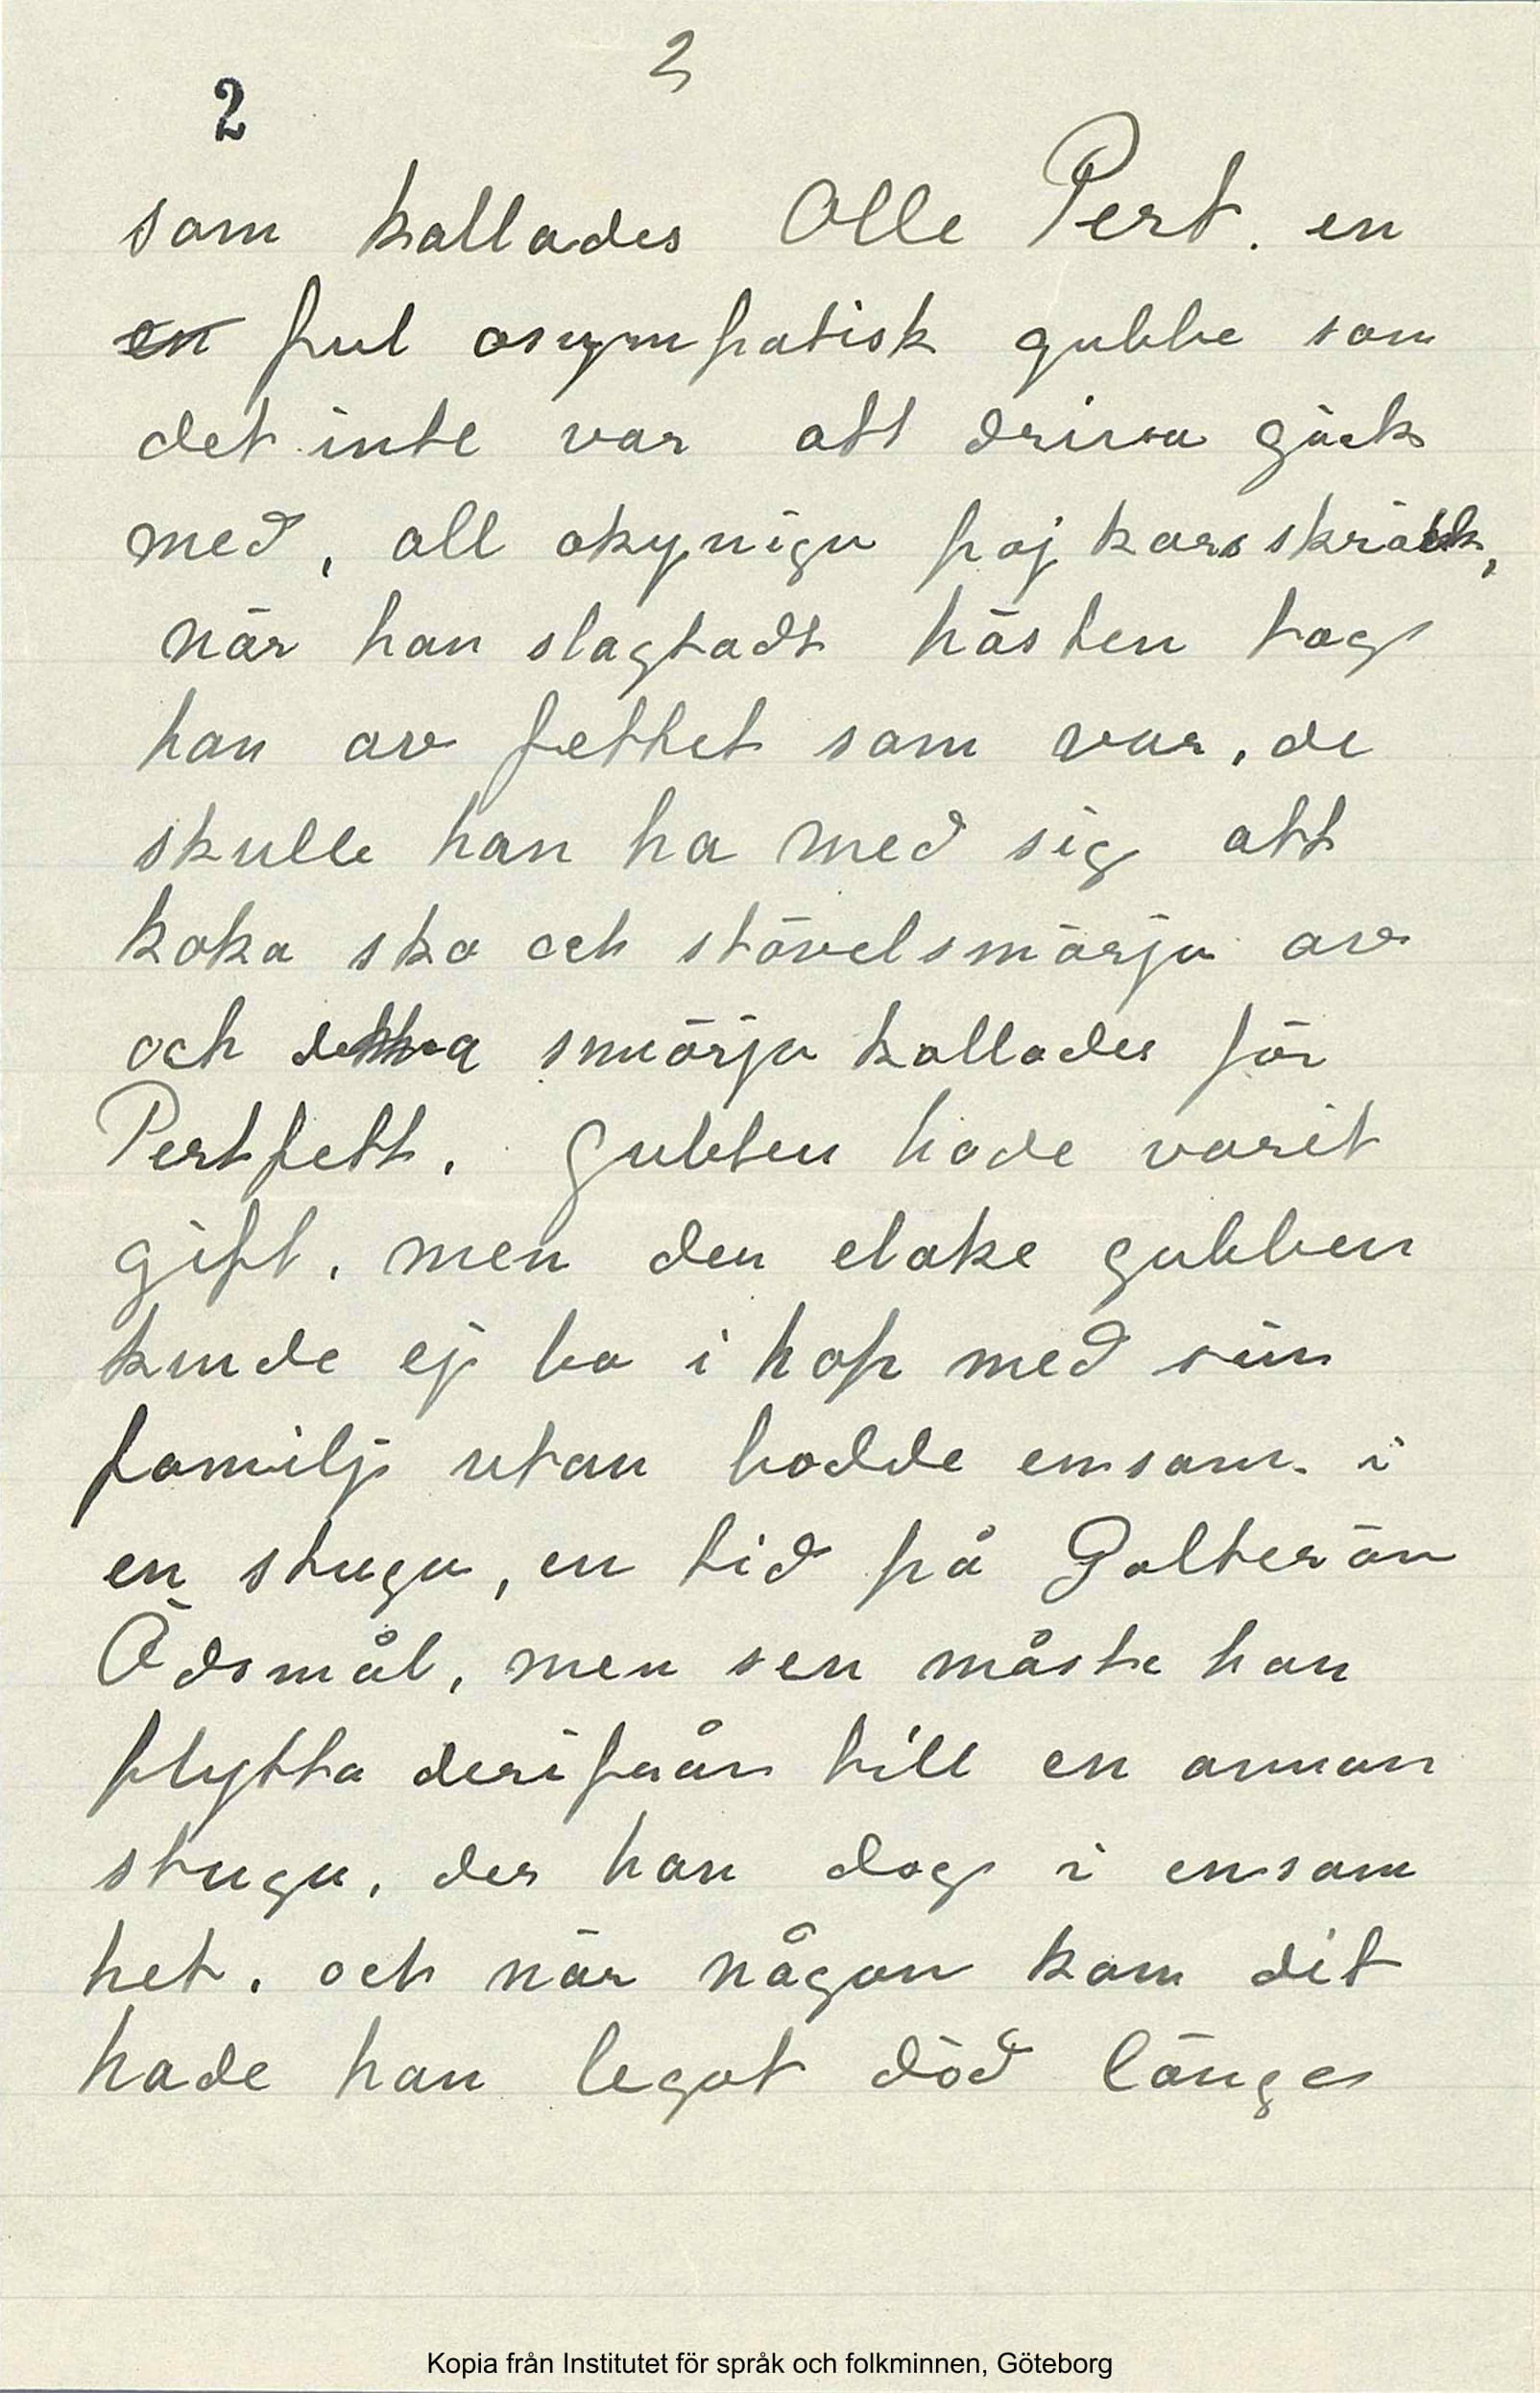 2
2
som kallades Olle Pert. en
en ful osympatisk gubbe som
det inte var att driva gäck
med, all okynigu pojkars skräck,
när han slagtadt hästen tog
han av fettet som var, de
skulle han ha med sig att
koka sko och stövelsmörja av
och dettta smörja kallades för
Pertfett. Gubben hade varit
gift, men den elake gubben
kunde ej bo i hop med sin
familj utan bodde ensam i
en stuga, en tid på Galterön
Ödsmål, men sen måste han
flytta derifrån till en annan
stuga, der han dog i ensam
het. och när någon kom dit
hade han legat död länges
Kopia från Institutet för språk och folkminnen, Göteborg